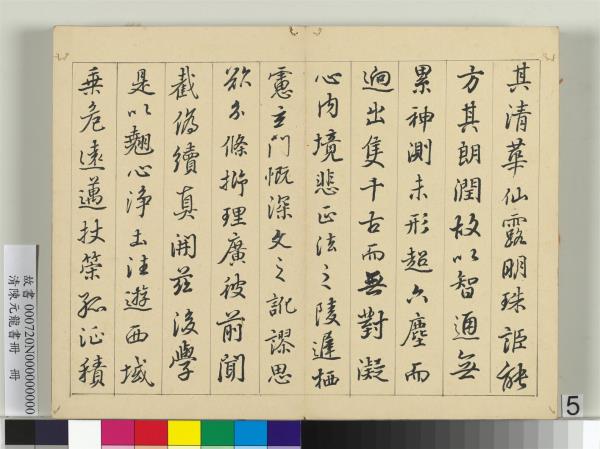 其清華仙露明珠詎能
方其朗潤故以智通無
累神測未形超六塵而
迥出隻千古而無對凝
心內境悲正法之陵遲栖
慮玄門慨深文之訛謬思
欲分條析理廣彼前聞
截偽續真開茲後學
是以翹心淨土往遊西域
乘危遠邁杖策孤征積
故書 000720N000000000
清陳元龍書冊 冊
5